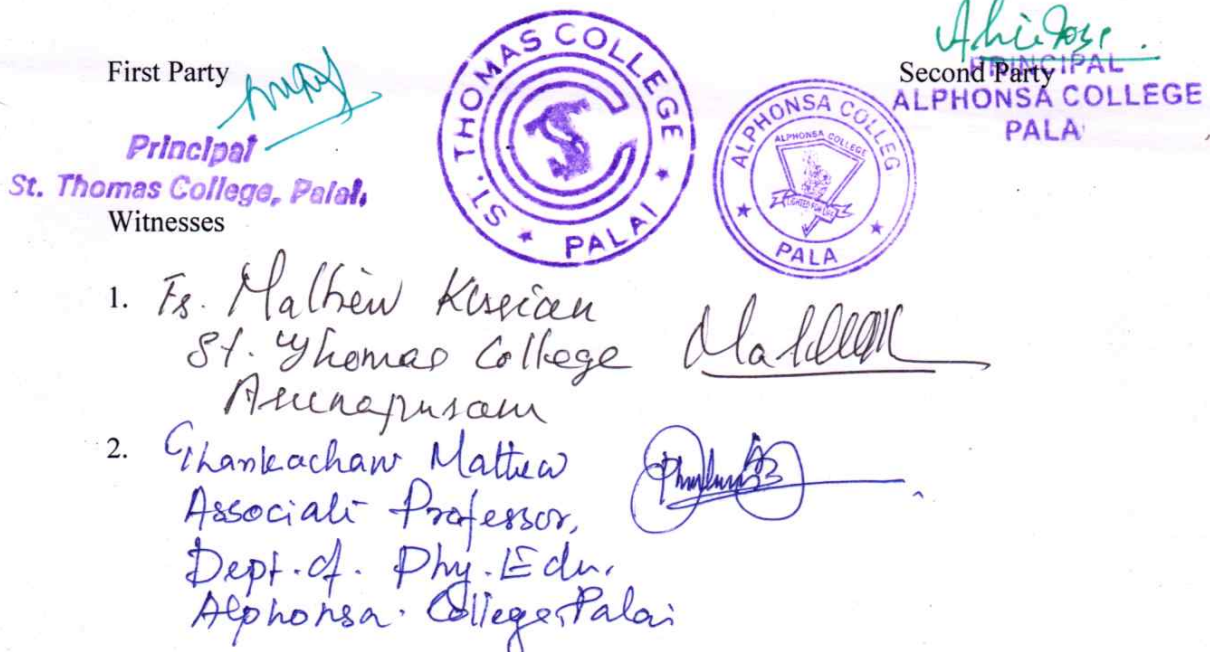 First Party
Principal
St. Thomas College, Palai,
ST. THOMAS COLLEGE
PALAI
ALPHONSA COLLEG
ALPHONSA COLLEGE
LIGHTED FOR LIFE
PALA
Second Party
PRINCIPAL
ALPHONSA COLLEGE
PALA
Witnesses
1. Fr. Mathew Kurian
St. Thomas College
Arunapuram
2. Thankachan Mathew
Associate Professor,
Dept. of. Phy. Edu.
Alphonsa. College, Palai